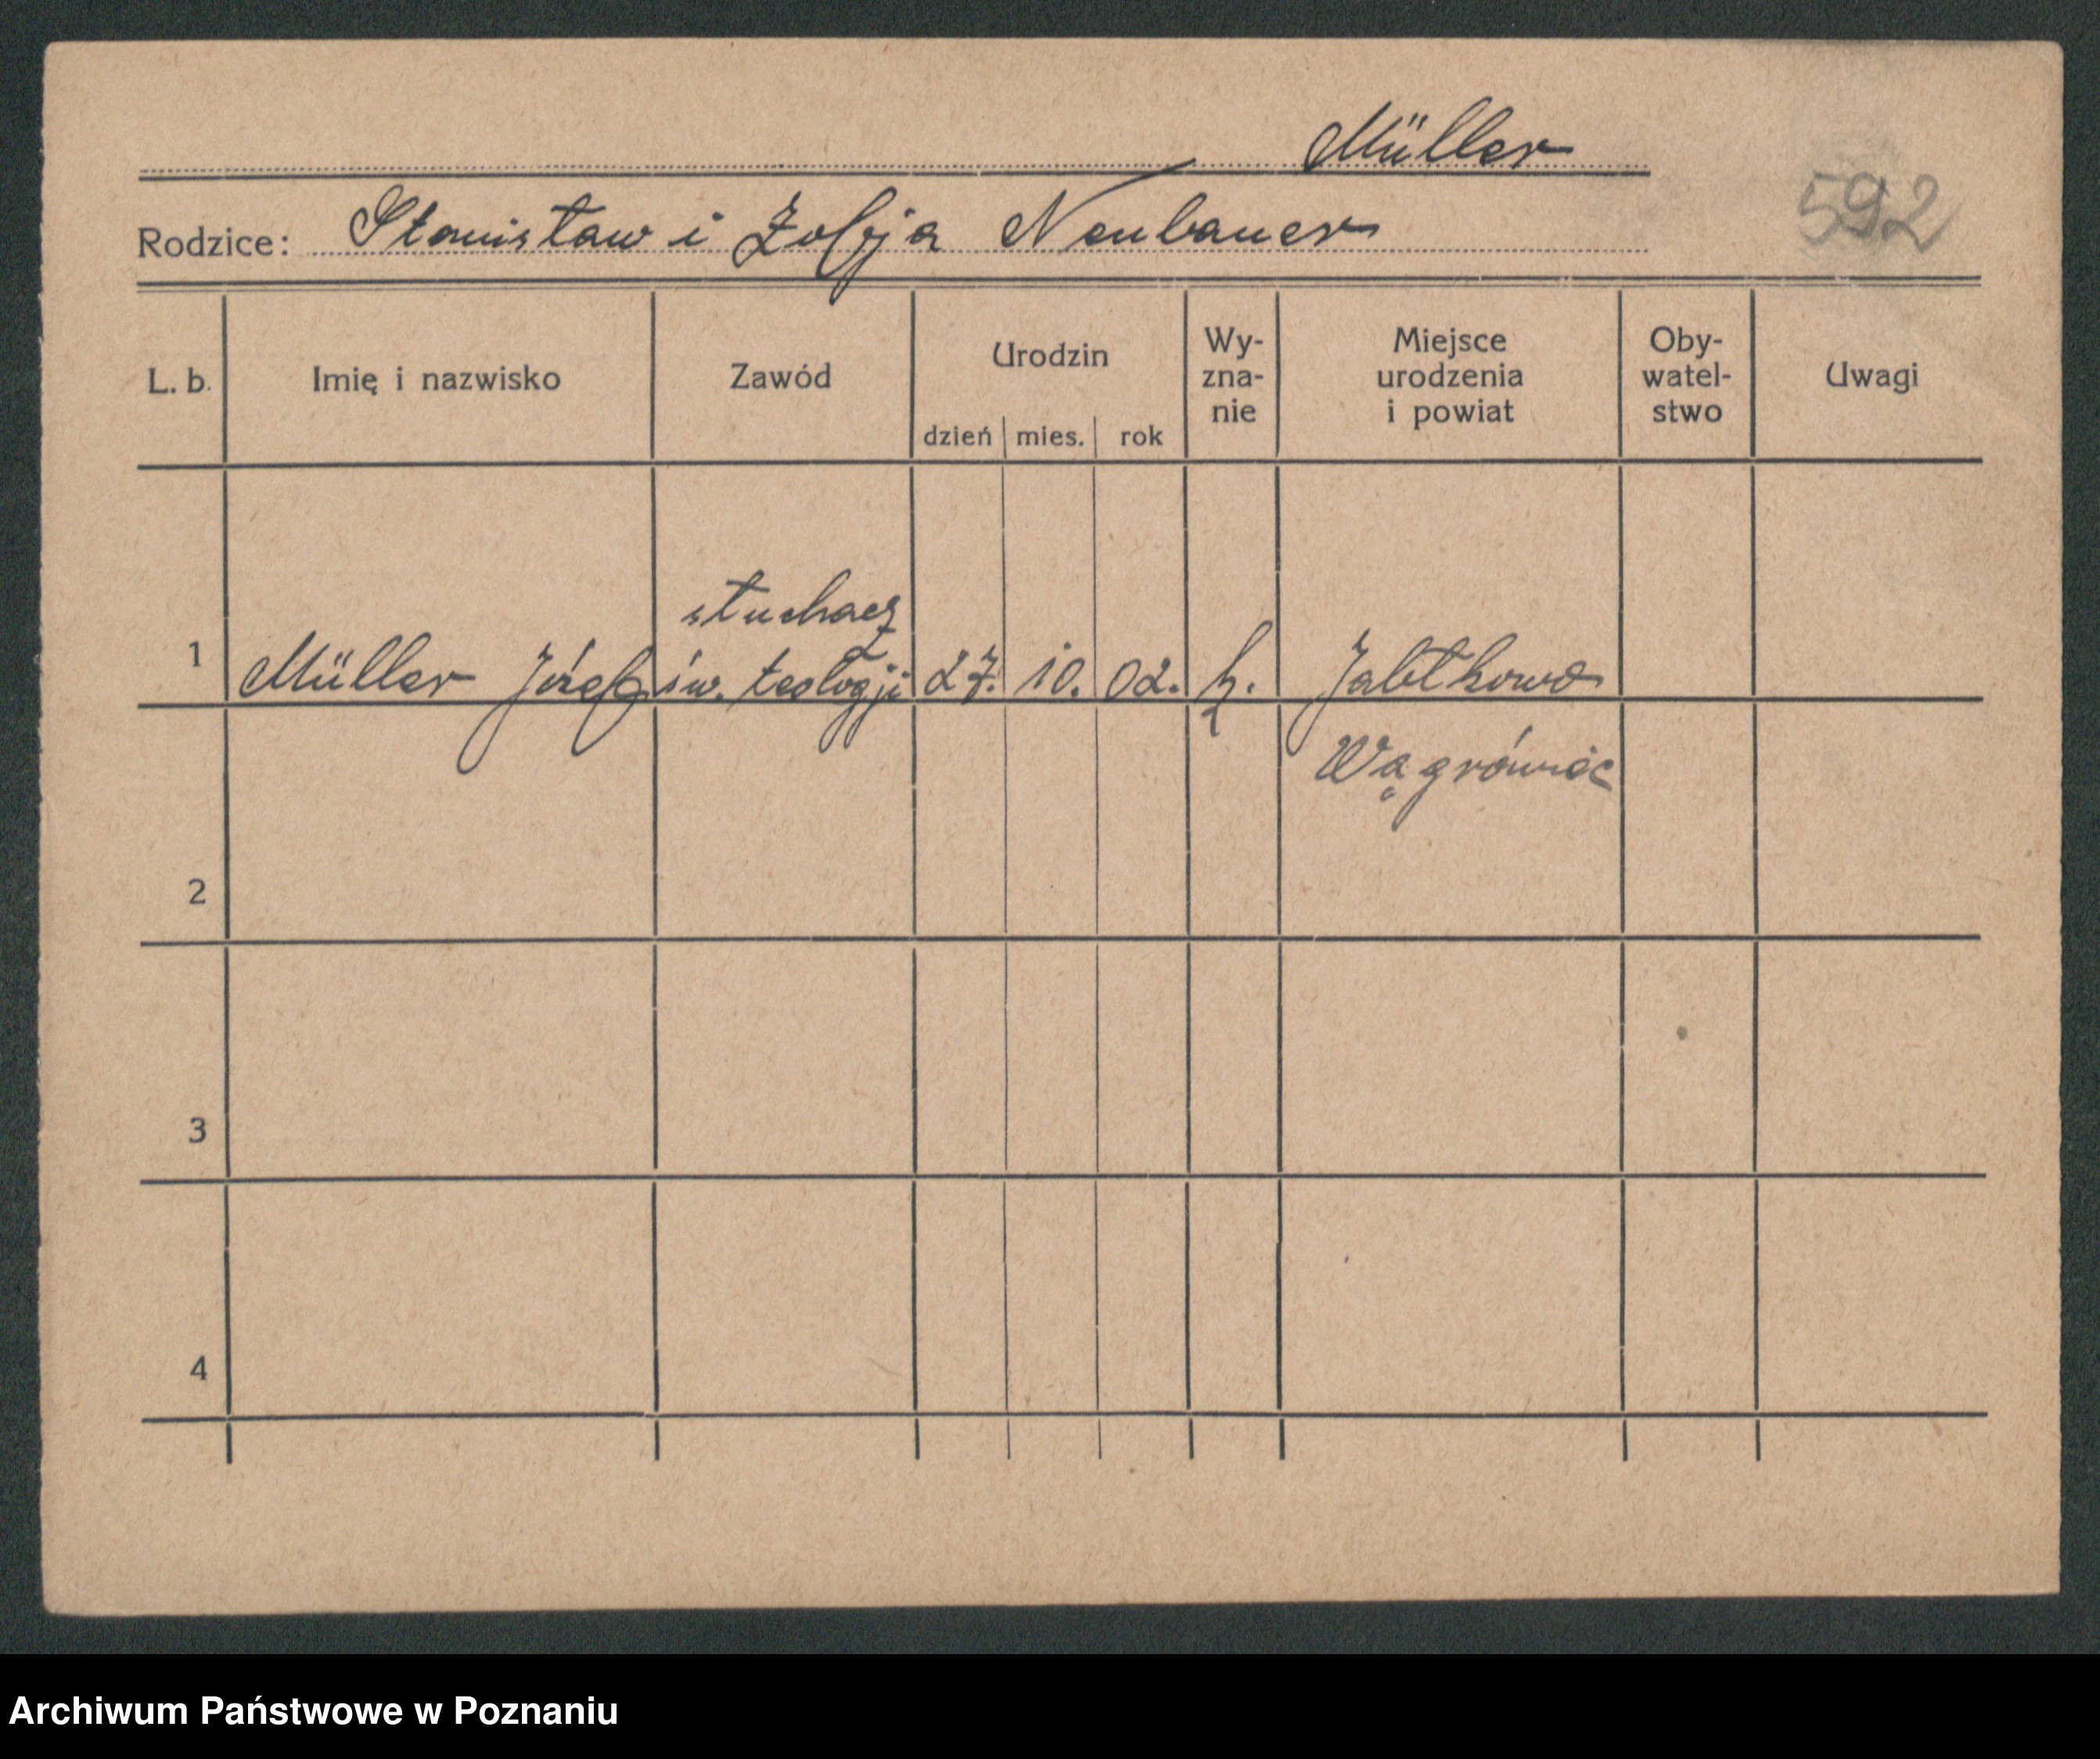 Müller
592
Rodzice: Stanisław i Zofja Neubauer
L. b.
Imię i nazwisko
Zawód
Urodzin
dzień mies. rok
Wy-
zna-
nie
Miejsce
urodzenia
i powiat
Oby-
watel-
stwo
Uwagi
słuchacz
1 Müller Józef św. teologji 27. 10. 02. k. Jabłkowo
Wągrówiec
2
3
4
Archiwum Państwowe w Poznaniu